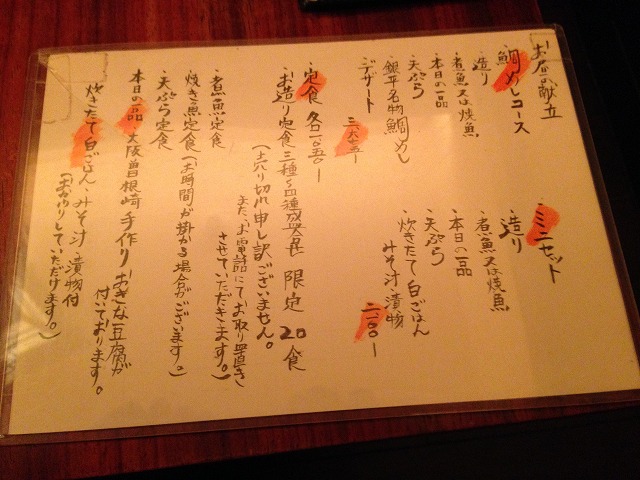 お昼の献立
鯛めしコース
・造り
・煮魚又は焼魚
・本日の一品
・天ぷら
・銀平名物鯛めし
・デザート
三、六七五ー
・ミニセット
・造り
・煮魚又は焼魚
・本日の一品
・天ぷら
・炊きたて白ごはん
みそ汁 漬物
二一〇〇ー
・定食 各一〇五〇ー
お造り定食 三種〜四種盛 限定20食
(売り切れ申し訳ございません。
また、お電話にてお取り置き
させていただきます。)
・煮魚定食
・焼き魚定食(お時間が掛かる場合がございます。)
・天ぷら定食
本日の一品・大阪曽根崎 手作り おきな豆腐が
付いております。
炊きたて白ごはん・みそ汁・漬物付
(おかわりしていただけます。)